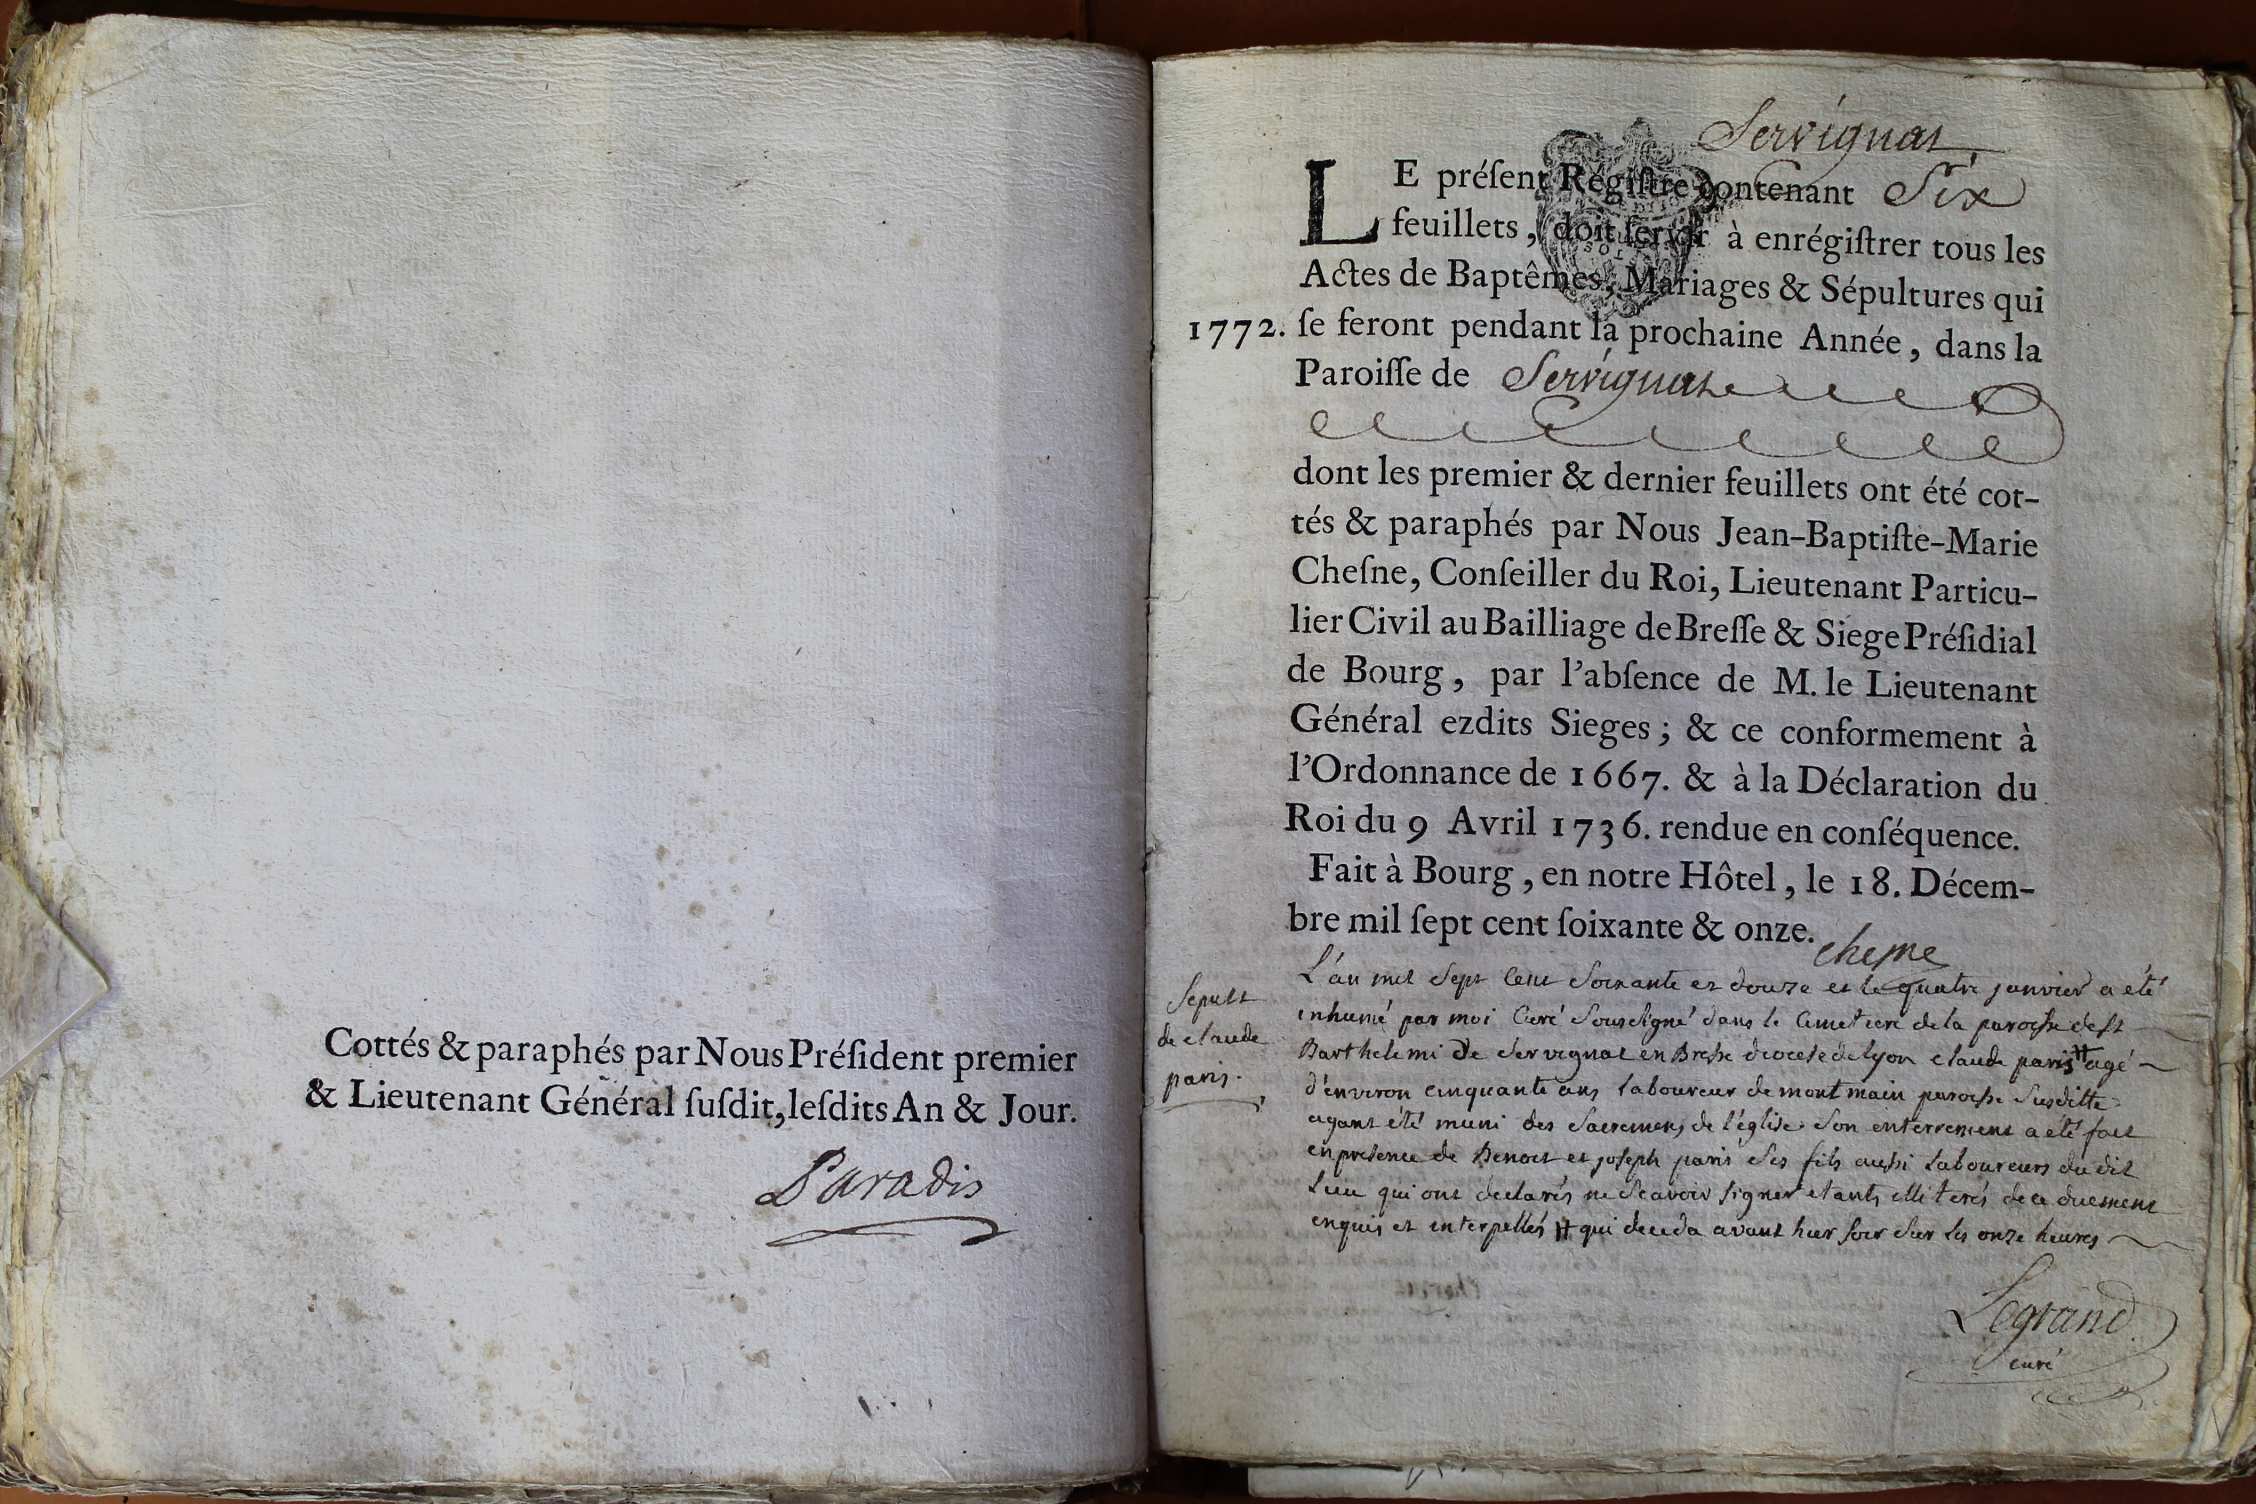 Cottés & paraphés par Nous Préſident premier
& Lieutenant Général ſuſdit, leſdits An & Jour.
Paradis
Servignat
LE préſent Régiſtre contenant Six
feuillets, doit ſervir à enrégiſtrer tous les
Actes de Baptêmes, Mariages & Sépultures qui
1772. ſe feront pendant la prochaine Année, dans la
Paroiſſe de Servignat
dont les premier & dernier feuillets ont été cot-
tés & paraphés par Nous Jean-Baptiſte-Marie
Cheſne, Conſeiller du Roi, Lieutenant Particu-
lier Civil au Bailliage de Breſſe & Siege Préſidial
de Bourg, par l'abſence de M. le Lieutenant
Général ezdits Sieges; & ce conformement à
l'Ordonnance de 1667. & à la Déclaration du
Roi du 9 Avril 1736. rendue en conſéquence.
Fait à Bourg, en notre Hôtel, le 18. Décem-
bre mil ſept cent ſoixante & onze.
cheſne
Sepult
de claude
paris.
L'an mil sept cent soixante et douze et le quatre janvier a été
inhumé par moi Curé soussigné dans le Cimetiere de la paroisse de st
Barthelemi de servignat en Bresse diocese de lyon claude paris # agé
d'environ cinquante ans laboureur de montmain paroisse susditte
ayant été muni des sacremens de l'église son enterrement a été fait
en presence de Benoit et joseph paris ses fils aussi laboureurs du dit
lieu qui ont declarés ne scavoir signer etants illiterés de ce duement
enquis et interpellés # qui deceda avant hier soir sur les onze heures
Legrand
curé